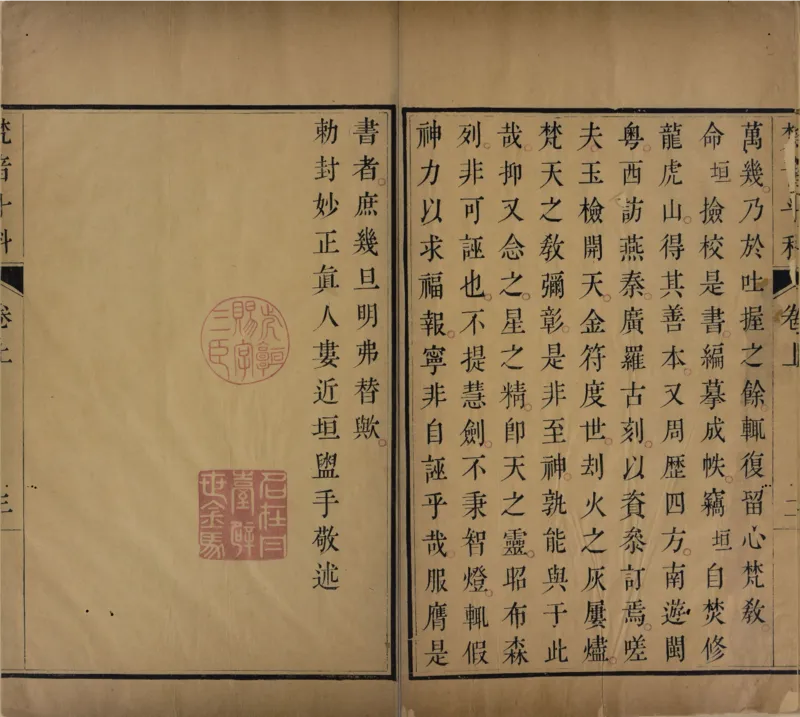 卷上
萬幾。乃於吐握之餘。輒復留心梵敎。
命垣撿校是書。編摹成帙。竊垣自焚修
龍虎山。得其善本。又周歷四方。南遊閩
粤。西訪燕秦。廣羅古刻。以資叅訂焉。嗟
夫。玉檢開天。金符度世。刦火之灰屢燼。
梵天之敎彌彰。是非至神。孰能與于此
哉。抑又念之。星之精。卽天之靈。昭布森
列。非可誣也。不提慧劍。不秉智燈。輒假
神力以求福報。寧非自誣乎哉。服膺是
書者。庶幾旦明弗替歟。
勅封妙正眞人婁近垣盥手敬述
賜字
三臣
梵音斗科
卷上
三